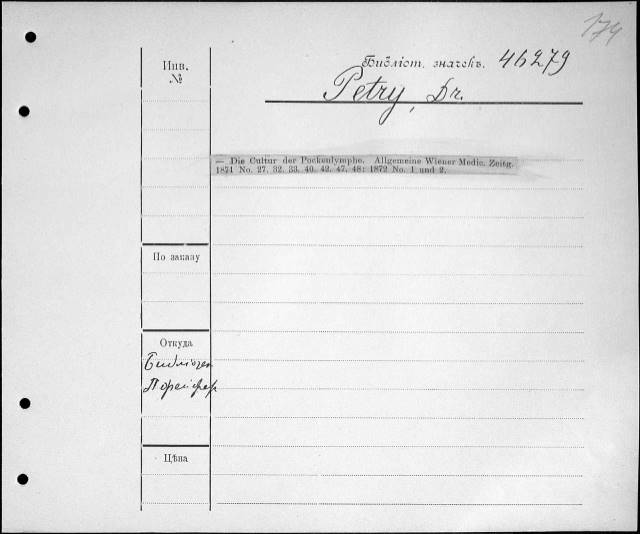 174
Библіот. значекъ. 46279
Инв.
№
Petry, Dr.
— Die Cultur der Pockenlymphe. Allgemeine Wiener Medic. Zeitg.
1871 No. 27, 32, 33, 40, 42, 47, 48; 1872 No. 1 und 2.
По заказу
Откуда
Цѣна